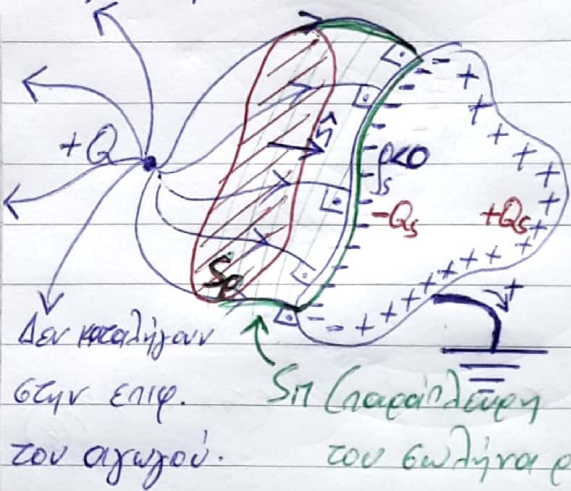 +Q
n̂
ρs<0
-Qs
+Qs
Sε
Δεν καταλήγουν
στην επιφ.
του αγωγού.
Sπ (παράπλευρη
του σωλήνα ρ